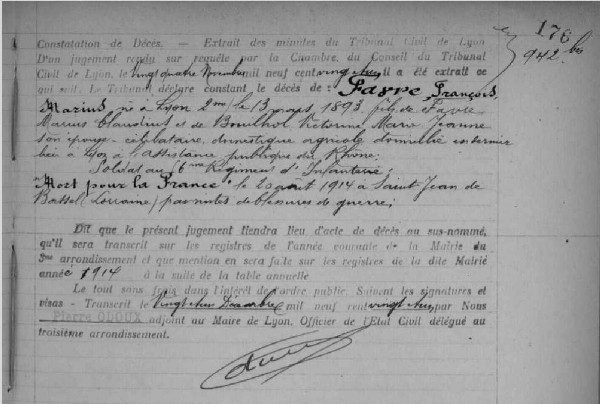 176
942 bis
Constatation de Décès. – Extrait des minutes du Tribunal Civil de Lyon
D'un jugement rendu sur requête par la Chambre du Conseil du Tribunal
Civil de Lyon, le vingt quatre Novembre mil neuf cent vingt deux il a été extrait ce
qui suit. Le Tribunal déclare constant le décès de : Favre, François,
Marius, né à Lyon 2me, le 13 mars 1893, fils de Favre
Marius Claudius et de Victorine, Marie Jeanne
son épouse - célibataire, domestique agricole domicilié en dernier
lieu à Lyon à l'Assistance publique du Rhône;
Soldat au Régiment d'Infanterie;
"Mort pour la France", le 20 août 1914 à Saint-Jean de
Bassel (Lorraine) par suites de blessures de guerre;
Dit que le présent jugement tiendra lieu d'acte de décès au sus-nommé,
qu'il sera transcrit sur les registres de l'année courante de la Mairie du
3me arrondissement et que mention en sera faite sur les registres de la dite Mairie
année 1914 à la suite de la table annuelle
Le tout sans frais dans l'intérêt de l'ordre public. Suivent les signatures et
visas - Transcrit le Décembre mil neuf cent vingt deux, par Nous
Pierre ODOUX adjoint au Maire de Lyon, Officier de l'Etat Civil délégué au
troisième arrondissement.